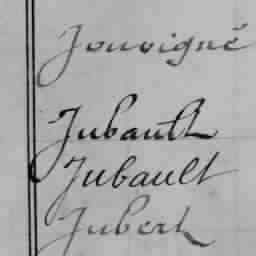 Jouvigné
Jubault
Jubault
Jubert